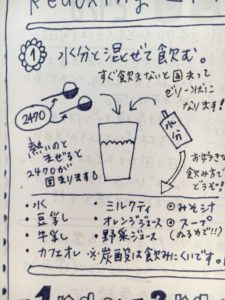 ① 水分と混ぜて飲む。
すぐ飲まないと固まって
ゼリー状に
なります!
2470
水分
熱いのと
まぜると
2470が
固まります
お好きな
飲み方で
どうぞ!
・水
・豆乳
・牛乳
・カフェオレ
・ミルクティ
・オレンジジュース
・野菜ジュース
・みそ汁
・スープ
(ぬるめで!!)
※炭酸は飲みにくいです。